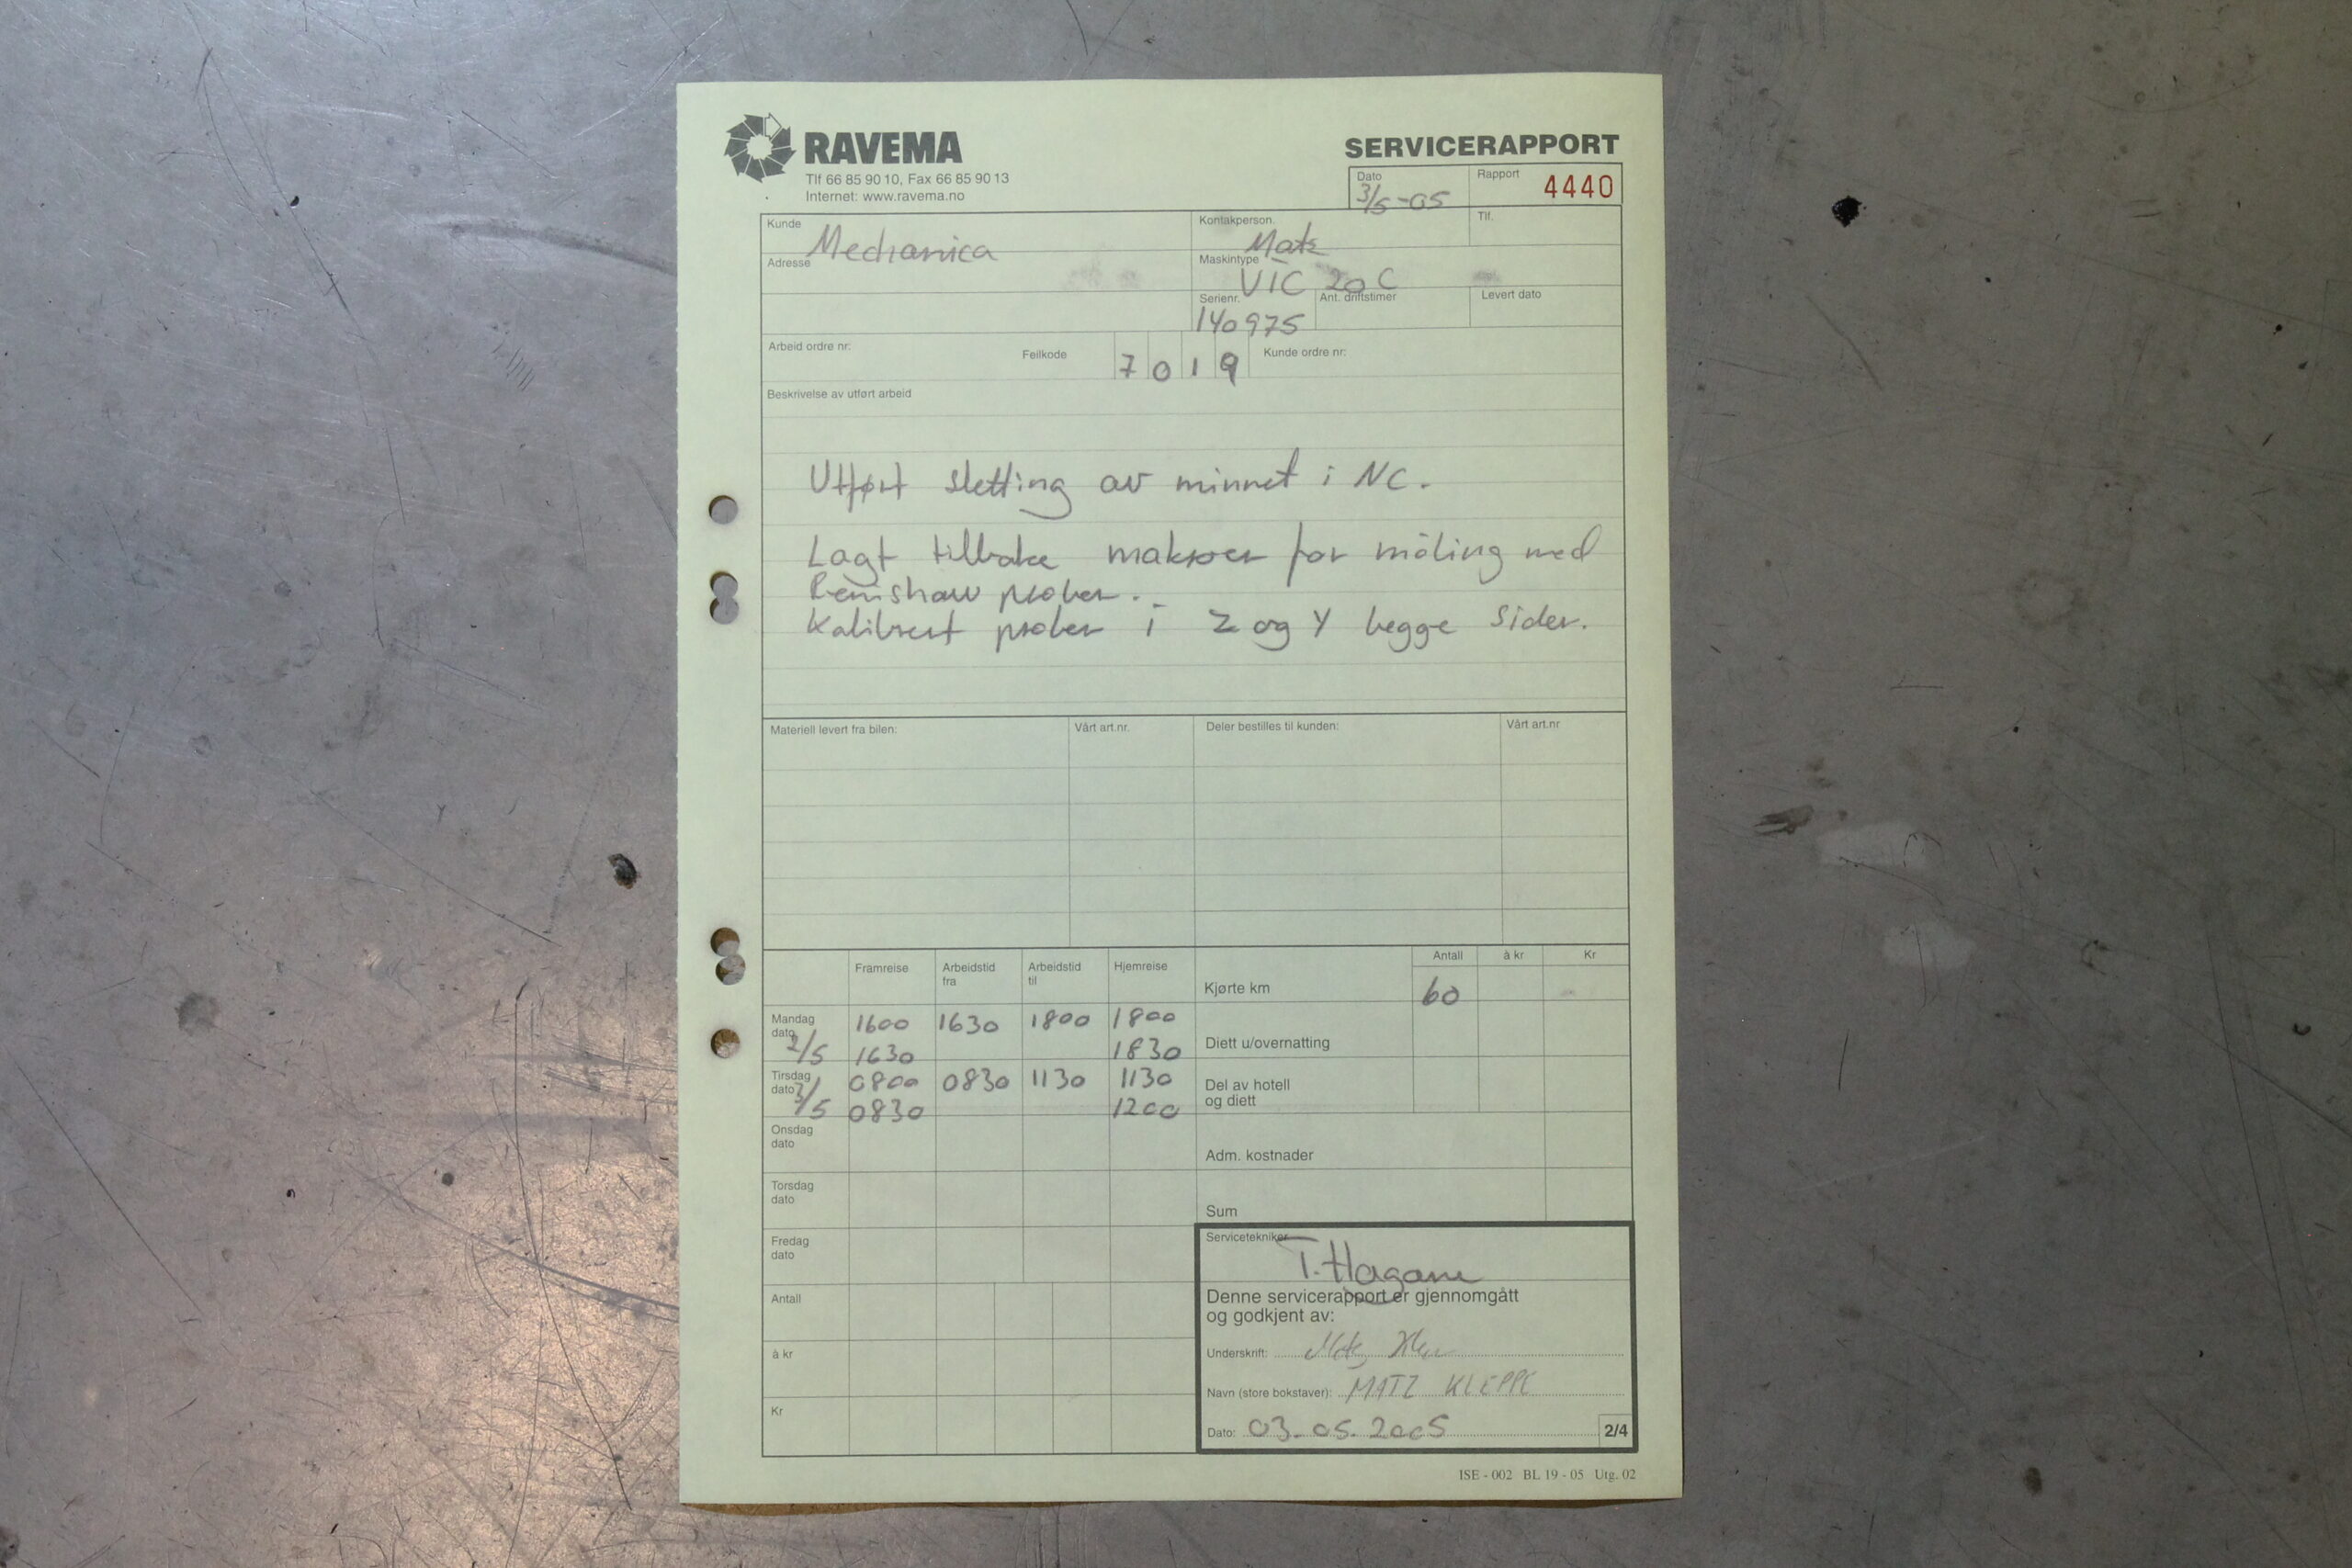 RAVEMA
Tlf 66 85 90 10, Fax 66 85 90 13
Internet: www.ravema.no
SERVICERAPPORT
Dato 3/5-05 Rapport 4440
Kunde Mechanica
Kontakperson. Mats
Tlf.
Adresse
Maskintype VTC 20 C
Serienr. 140975 Ant. driftstimer Levert dato
Arbeid ordre nr: Feilkode 7 0 1 9 Kunde ordre nr:
Beskrivelse av utført arbeid
Utført sletting av minnet i NC.
Lagt tilbake makroer for måling med
Renishaw prober.
Kalibrert prober i Z og Y begge sider.
Materiell levert fra bilen: Vårt art.nr. Deler bestilles til kunden: Vårt art.nr
Framreise Arbeidstid fra Arbeidstid til Hjemreise
Antall à kr Kr
Kjørte km 60
Mandag dato 2/5 1600 1630 1800 1800
1630 1830
Diett u/overnatting
Tirsdag dato 3/5 0800 0830 1130 1130
0830 1200
Del av hotell og diett
Onsdag dato
Adm. kostnader
Torsdag dato
Sum
Fredag dato
Antall
à kr
Kr
Servicetekniker T. Hagane
Denne servicerapport er gjennomgått
og godkjent av:
Underskrift:
Navn (store bokstaver): MATZ KLEPPE
Dato: 03.05.2005 2/4
ISE - 002 BL 19 - 05 Utg. 02